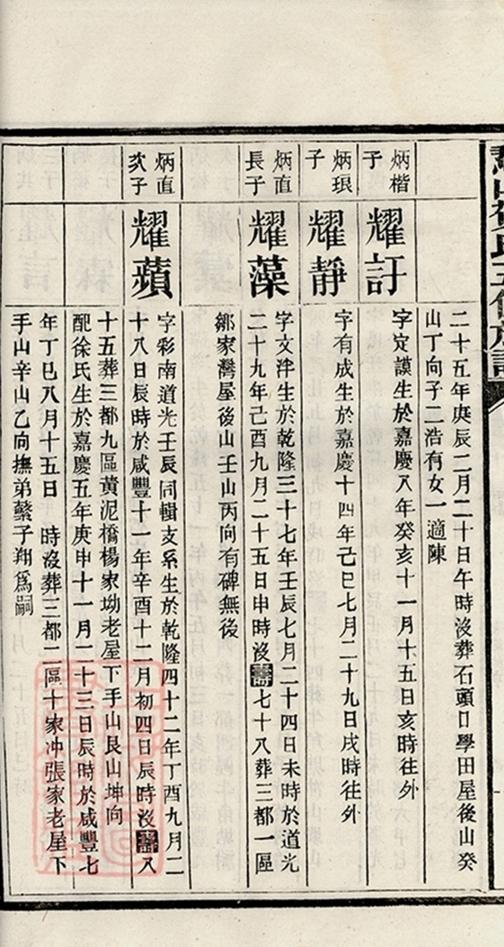 二十五年庚辰二月二十日午時沒葬石頭口學田屋後山癸
山丁向子二浩有女一適陳
炳楷
子
耀訏
字定謨生於嘉慶八年癸亥十一月十五日亥時往外
炳琅
子
耀靜
字有成生於嘉慶十四年己巳七月二十九日戌時往外
炳直
長子
耀藻
字文泮生於乾隆三十七年壬辰七月二十四日未時於道光
二十九年己酉九月二十五日申時沒壽七十八葬三都一區
鄒家灣屋後山壬山丙向有碑無後
炳直
次子
耀蘋
字彩南道光壬辰同輯支系生於乾隆四十二年丁酉九月二
十八日辰時於咸豐十一年辛酉十二月初四日辰時沒壽八
十五葬三都九區黃泥橋楊家坳老屋下手山艮山坤向
配徐氏生於嘉慶五年庚申十一月二十三日辰時於咸豐七
年丁巳八月十五日 時沒葬三都二區十家冲張家老屋下
手山辛山乙向撫弟蘩子翔為嗣